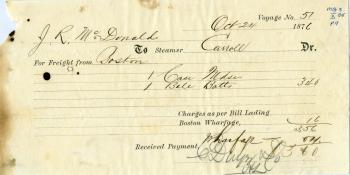 Voyage No. 51
Oct 24 1876
J. R. McDonald
To Steamer Carroll Dr.
For Freight from Boston
1 Case Mdse
1 Bale Batts 340
Charges as per Bill Lading 16
Boston Wharfage, 356
Wharfage 04
Received Payment, $3 60